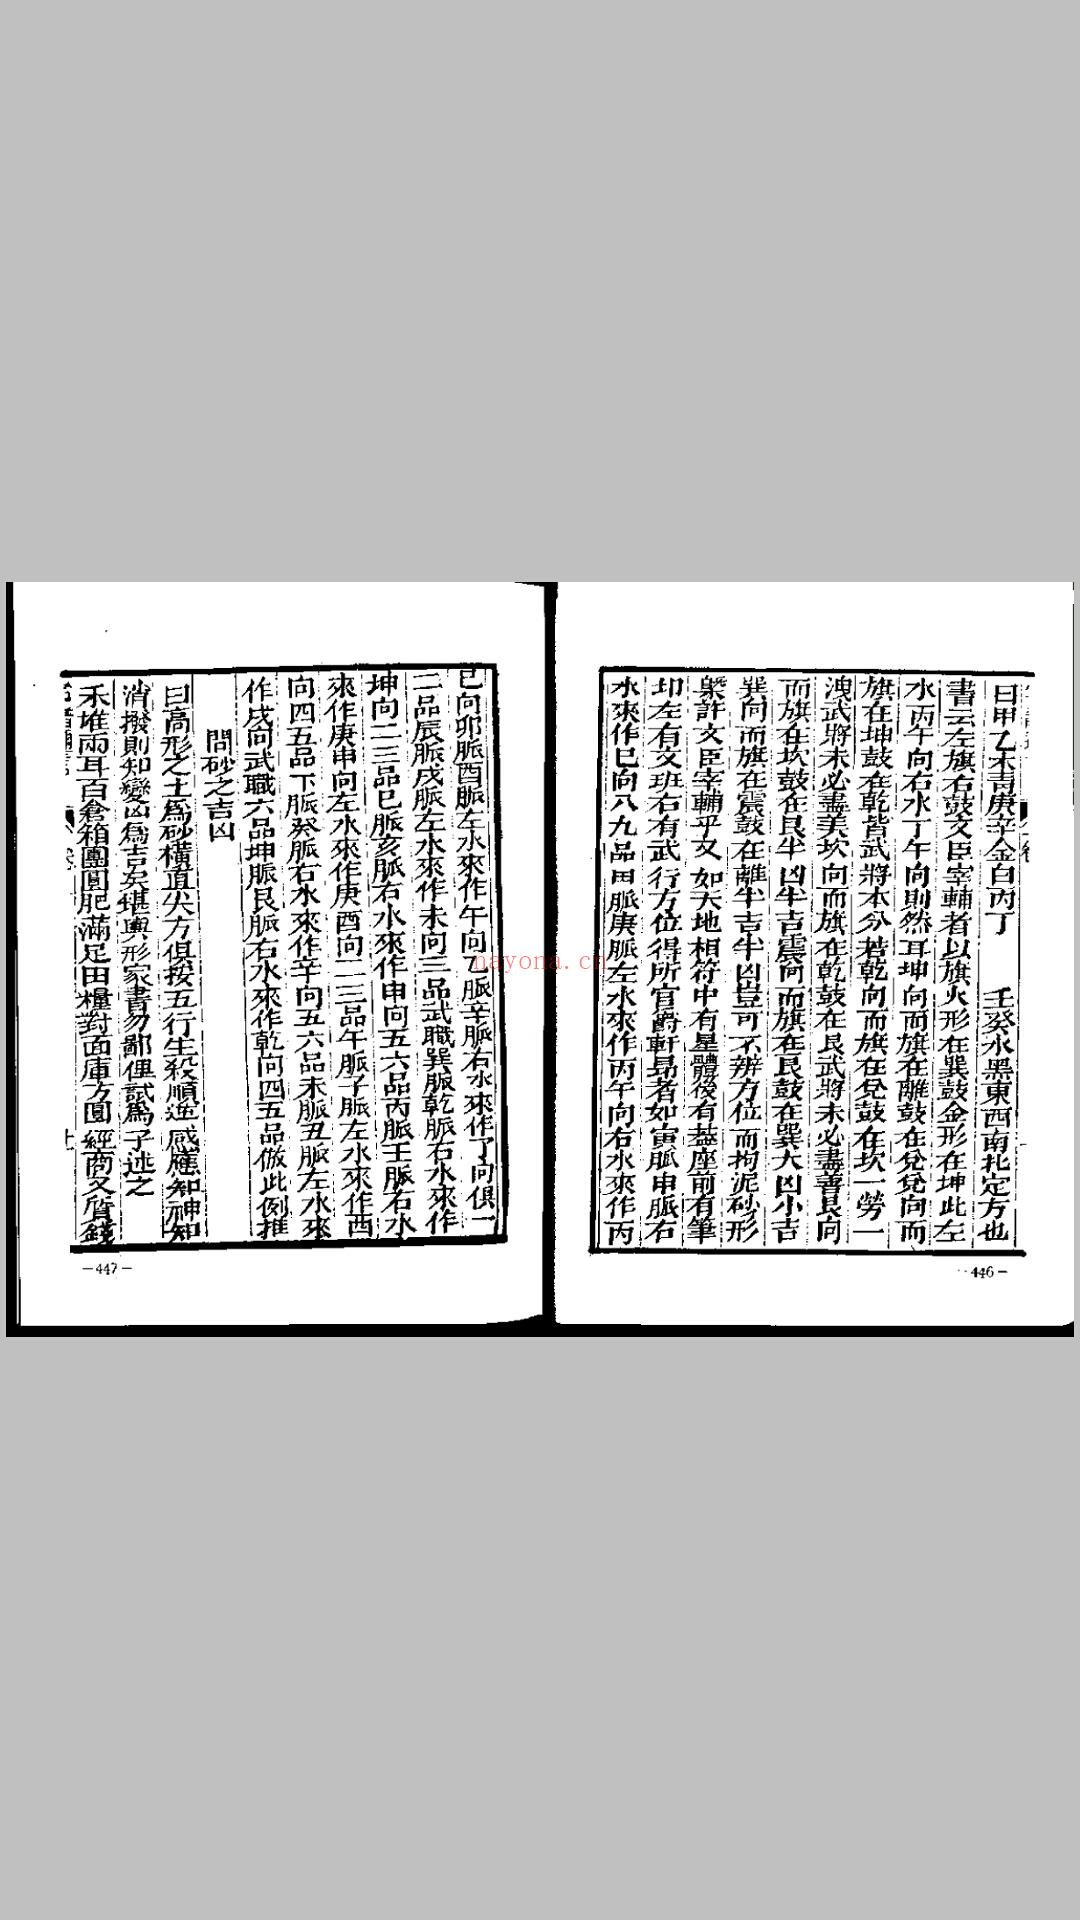 曰甲乙木青庚辛金白丙丁　壬癸水黑東西南北定方也
書云左旗右鼓文臣宰輔者以旗火形在巽鼓金形在坤此左
水丙午向右水丁午向則然耳坤向而旗在離鼓在兌兌向而
旗在坤鼓在乾皆武將本分若乾向而旗在兌鼓在坎一勞一
洩武將未必盡美坎向而旗在乾鼓在艮武將未必盡善艮向
而旗在坎鼓在艮半凶半吉震向而旗在艮鼓在巽大凶小吉
巽向而旗在震鼓在離半吉半凶豈可不辨方位而拘泥砂形
槩許文臣宰輔乎又如天地相符中有星體後有葢座前有筆
印左有文班右有武行方位得所官爵軒昂者如寅脈申脈右
水來作巳向八九品甲脈庚脈左水來作丙午向右水來作丙
巳向卯脈酉脈左水來作午向乙脈辛脈右水來作丁向俱一
二品辰脈戌脈左水來作未向三品武職巽脈乾脈右水來作
坤向二三品巳脈亥脈右水來作申向五六品丙脈壬脈右水
來作庚申向左水來作庚酉向一二品午脈子脈左水來作酉
向四五品丁脈癸脈右水來作辛向五六品未脈丑脈左水來
作戌向武職六品坤脈艮脈右水來作乾向四五品倣此例推
問砂之吉凶
曰高形之土為砂橫直尖方俱按五行生殺順逆感應知神知
消撥則知變凶為吉矣堪輿形家書易鄙俚試為子述之
禾堆兩耳百倉箱團圓肥滿足田糧對面庫方圓經商又質錢
－446－
－447－
nayona.cn